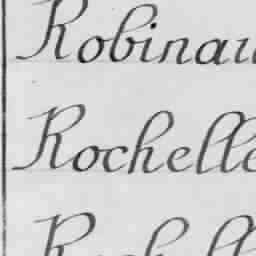 Robinau
Rochelle